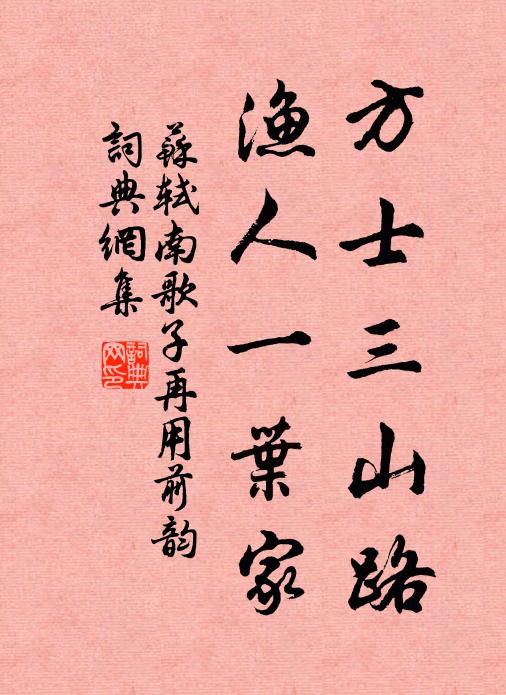 方士三山路
漁人一葉家
蘇軾南歌子再用前韵
詞典網集
詞典网印